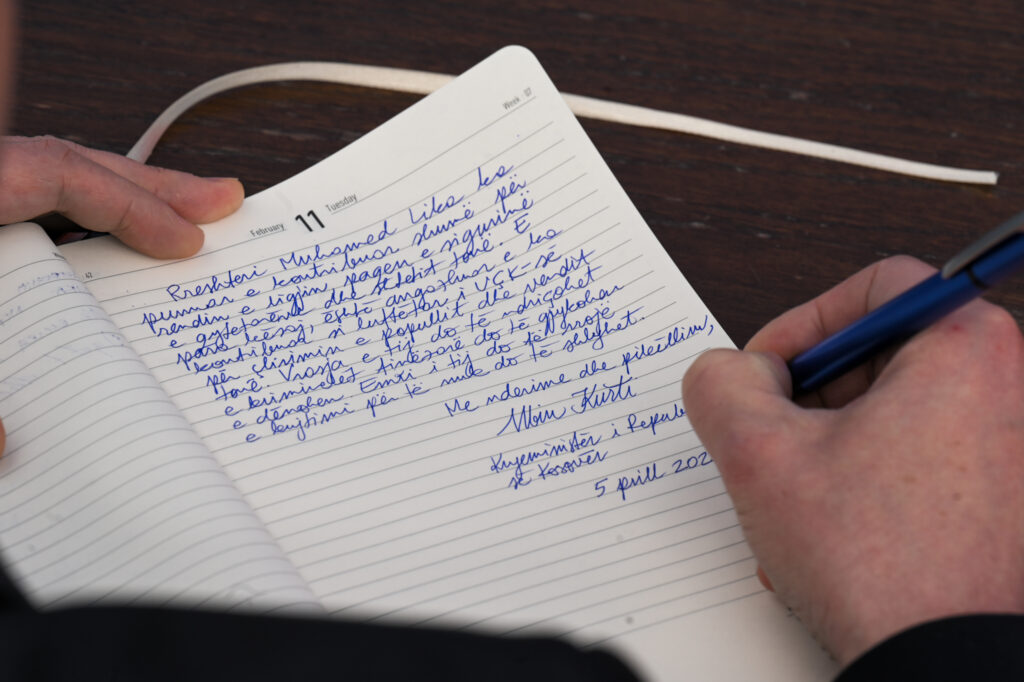 Week 07
February 11 Tuesday
Rreshteri Muhamed Lika ka
punuar e kontribuar shumë për
rendin e ligjin, paqen e sigurinë
e qytetarëve dhe shtetit tonë. E
para kësaj, është angazhuar e ka
kontribuar si luftëtar i UÇK-së
për çlirimin e popullit dhe vendit
tonë. Vrasja e tij do të ndriçohet
e kriminelët finessorë do të gjykohen
e dënohen. Emri i tij do të rrojë
e kujtimi për të nuk do të shlyhet.
Me nderime dhe pikëllim,
Albin Kurti
Kryeministër i Republi
së Kosovës
5 prill 202